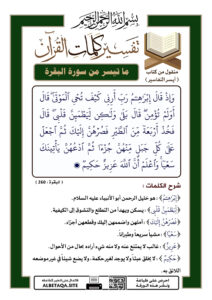 بسم الله الرحمن الرحيم
تفسير كلمات القرآن
منقول من كتاب
( أيسر التفاسير )
ما تيسر من سورة البقرة
وَإِذْ قَالَ إِبْرَاهِـۧمُ رَبِّ أَرِنِى كَيْفَ تُحْىِ ٱلْمَوْتَىٰ قَالَ
أَوَلَمْ تُؤْمِن قَالَ بَلَىٰ وَلَـٰكِن لِّيَطْمَئِنَّ قَلْبِى قَالَ
فَخُذْ أَرْبَعَةً مِّنَ ٱلطَّيْرِ فَصُرْهُنَّ إِلَيْكَ ثُمَّ ٱجْعَلْ
عَلَىٰ كُلِّ جَبَلٍ مِّنْهُنَّ جُزْءًا ثُمَّ ٱدْعُهُنَّ يَأْتِينَكَ
سَعْيًا وَٱعْلَمْ أَنَّ ٱللَّهَ عَزِيزٌ حَكِيمٌ
( البقرة : 260 )
شرح الكلمات :
﴿إبراهيم﴾ : هو خليل الرحمن أبو الأنبياء عليه السلام.
﴿ليطمئن قلبي﴾ : يسكن ويهدأ من التطلع والتشوق إلى الكيفية.
﴿فصرهن إليك﴾ : أملهن واضممهن إليك وقطعهن أجزاء.
﴿سعيا﴾ : مشياً سريعاً وطيراناً.
﴿عزيز﴾ : غالب لا يمتنع عنه ولا منه شيء أراده بحال من الأحوال.
﴿حكيم﴾ : لا يخلق عبثاً ولا يوجد لغير حكمة، ولا يضع شيئاً في غير موضعه
اللائق به.
ALBETAQA.SITE